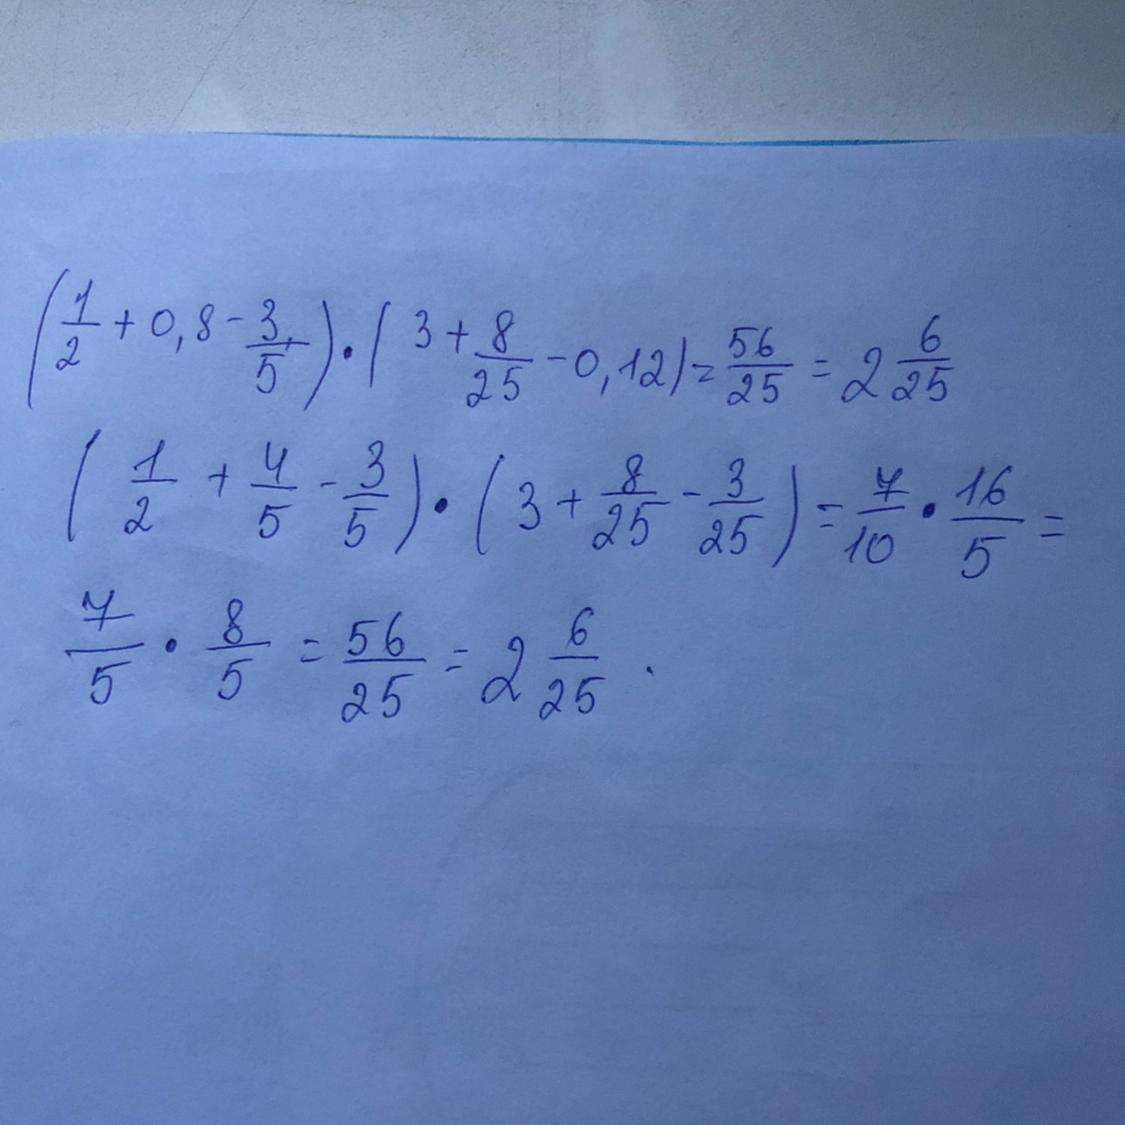 (1/2 + 0,8 - 3/5) · (3 + 8/25 - 0,12) = 56/25 = 2 6/25
(1/2 + 4/5 - 3/5) · (3 + 8/25 - 3/25) = 7/10 · 16/5 =
7/5 · 8/5 = 56/25 = 2 6/25 .